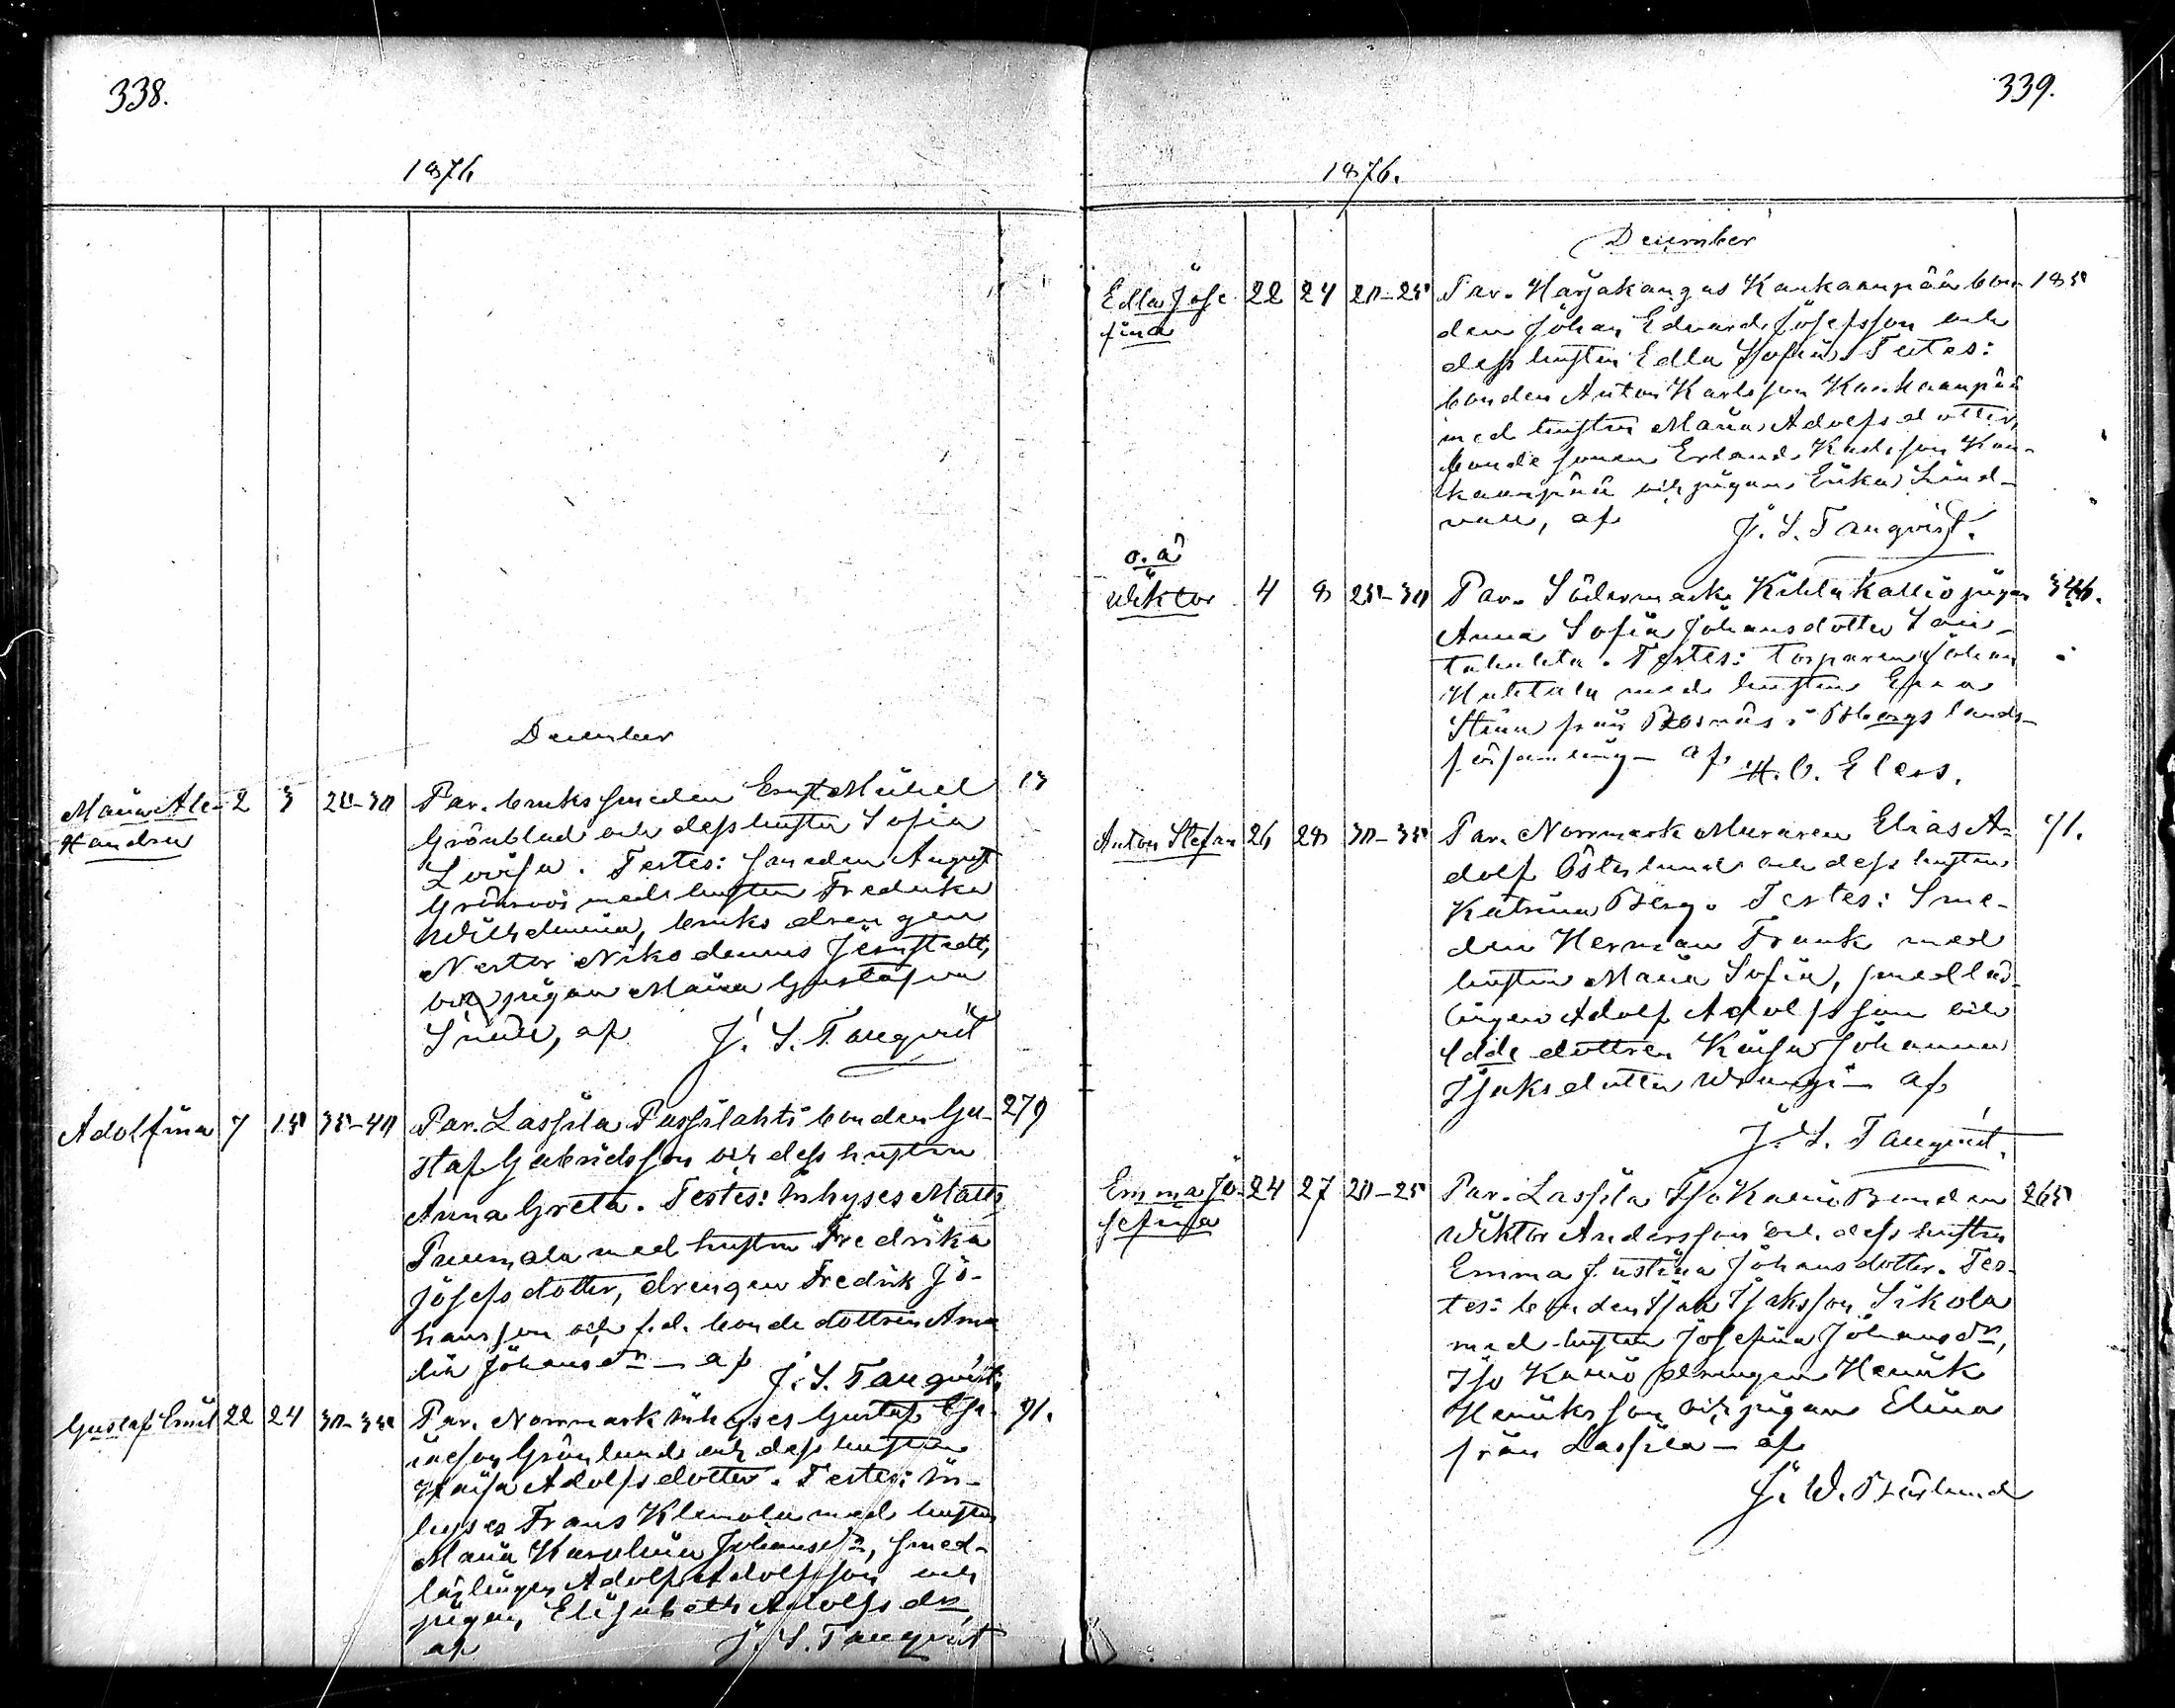 338.
1876
December
Maria Ale- 2 3 25-30 Par. bruks smeden Ernst Mikael 13
xandra
Grönblad och dess hustru Sofia
Lovisa. Testes: smeden August
Grönroos med hustru Fredrika
Wilhelmina, bruks drengen
Nestor Nikodemus Jernstedt,
och pigan Maria Gustafva
Snäll, af J. S. Tanqvist
Adolfina 7 15 35-40 Par. Lassila Passilahti bonden Gu- 279
staf Gabrielsson och dess hustru
Anna Greta. Testes: Inhyses Matts
med hustru Fredrika
Josefsdotter, drengen Fredrik Jo-
hansson och f.d. bonde dottren Ama
lia Johansdr — af J. S. Tanqvist.
Gustaf Emil 22 24 30-35 Par. Norrmark Inhyses Gustaf Esa- 91.
iaeson Grönlund och dess hustru
Kaisa Adolfsdotter. Testes: In-
hyses Frans Klemola med hustru
Maria Karolina Johansdr, smed-
lärlingen Adolf Adolfsson och
pigan Elisabeth Adolfsdr,
af J. S. Tanqvist
339.
1876.
December
Edla Jose 22 24 20-25 Par. Harjakangas Kankaanpää bon- 185
fina
den Johan Edvard Josefsson och
dess hustru Edla Sofia. Testes:
bonden Anton Karlsson Kankaanpää
med hustru Maria Adolfsdotter,
bonde sonen Erland Karlsson Kan-
kaanpää och pigan Erika Lind-
vall, af J. S. Tanqvist.
o. ä
Wiktor 4 8 25-30 Par. Södermark Kihlakallio pigan 346.
Anna Sofia Johansdotter
Testes: Torparen Johan
Huhtala med hustru
Stina från i Bborgs lands-
församling — af H. O. Elers.
Anton Stefan 26 28 30-35 Par. Norrmark Muraren Elias A- 91.
dolf Österlund och dess hustru
Katrina Berg. Testes: Sme-
den Herman Frank med
hustru Maria Sofia, smedlär-
lingen Adolf Adolfsson och
dottren Kaisa Johanna
Isaksdotter — af
J. S. Tanqvist.
Emma Jo- 24 27 20-25 Par. Lassila Iso Karrio Bonden 265
sefina
Wiktor Andersson och dess hustru
Emma Justina Johansdotter. Tes-
tes: bonden Isak Isaksson Sikola
med hustru Josefina Johansdr,
Iso Karrio drengen Henrik
Henriksson och pigan Elina
från Lassila — af
J. W. Bärlund